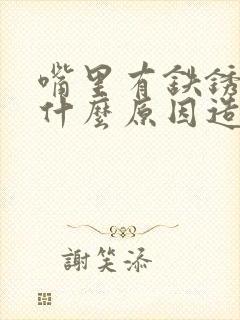 嘴里有鉄銹
什麼原因造
謝笑添